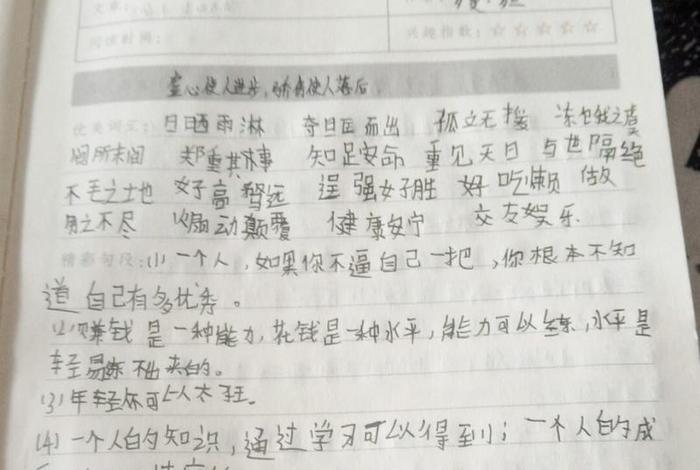 文章：
阅读时间： 兴趣指数：☆☆☆☆☆
虚心使人进步，骄傲使人落后。
优美词汇： 日晒雨淋 夺目而出 孤立无援 冻饿之
闻所未闻 郑重其事 知足安命 重见天日 与世隔绝
不毛之土地 好高骛远 逞强好胜 好吃懒做
之不尽 煽动颠覆 健康安宁 交友娱乐
精彩句段：(1) 一个人，如果你不逼自己一把，你根本不知
道自己有多优秀。
(2) 赚钱是一种能力，花钱是一种水平，能力可以练，水平是
轻易练不出来的。
(3) 年轻你可以太狂。
(4) 一个人的知识，通过学习可以得到；一个人的成